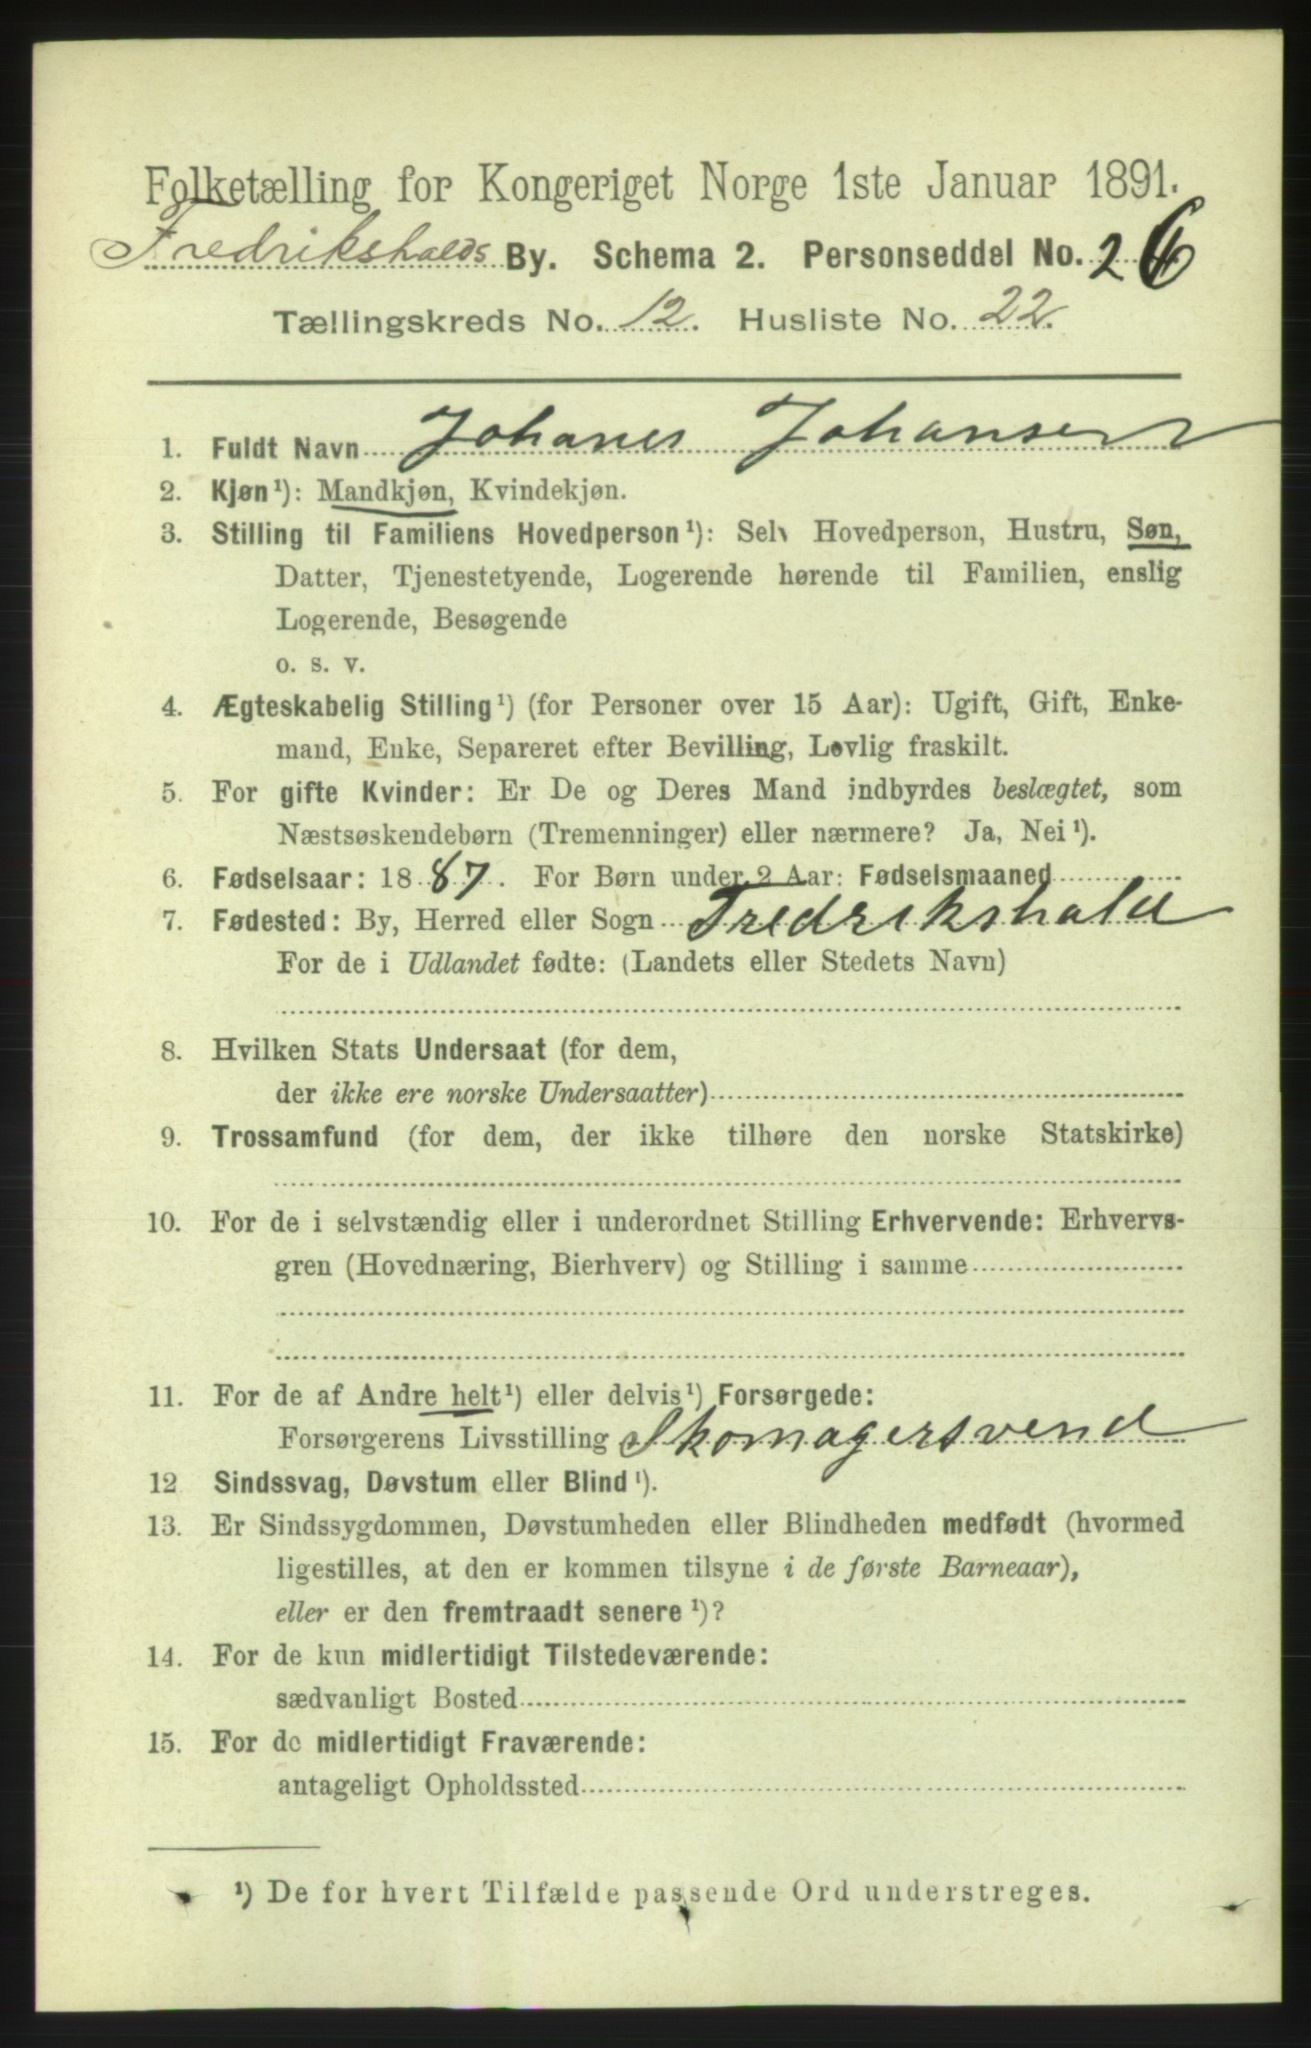 Folketælling for Kongeriget Norge 1ste Januar 1891.
Fredrikshalds By. Schema 2. Personseddel No. 26
Tællingskreds No. 12. Husliste No. 22.
1. Fuldt Navn Johanes Johansen
2. Kjøn¹): Mandkjøn, Kvindekjøn.
3. Stilling til Familiens Hovedperson¹): Selv Hovedperson, Hustru, Søn,
Datter, Tjenestetyende, Logerende hørende til Familien, enslig
Logerende, Besøgende
o. s. v.
4. Ægteskabelig Stilling¹) (for Personer over 15 Aar): Ugift, Gift, Enke-
mand, Enke, Separeret efter Bevilling, Lovlig fraskilt.
5. For gifte Kvinder: Er De og Deres Mand indbyrdes beslægtet, som
Næstsøskendebørn (Tremenninger) eller nærmere? Ja, Nei¹).
6. Fødselsaar: 1887. For Børn under 2 Aar: Fødselsmaaned
7. Fødested: By, Herred eller Sogn Fredrikshald
For de i Udlandet fødte: (Landets eller Stedets Navn)
8. Hvilken Stats Undersaat (for dem,
der ikke ere norske Undersaatter)
9. Trossamfund (for dem, der ikke tilhøre den norske Statskirke)
10. For de i selvstændig eller i underordnet Stilling Erhvervende: Erhvervs-
gren (Hovednæring, Bierhverv) og Stilling i samme
11. For de af Andre helt¹) eller delvis¹) Forsørgede:
Forsørgerens Livsstilling Skomagersvend
12 Sindssvag, Døvstum eller Blind¹).
13. Er Sindssygdommen, Døvstumheden eller Blindheden medfødt (hvormed
ligestilles, at den er kommen tilsyne i de første Barneaar),
eller er den fremtraadt senere¹)?
14. For de kun midlertidigt Tilstedeværende:
sædvanligt Bosted
15. For de midlertidigt Fraværende:
antageligt Opholdssted
¹) De for hvert Tilfælde passende Ord understreges.